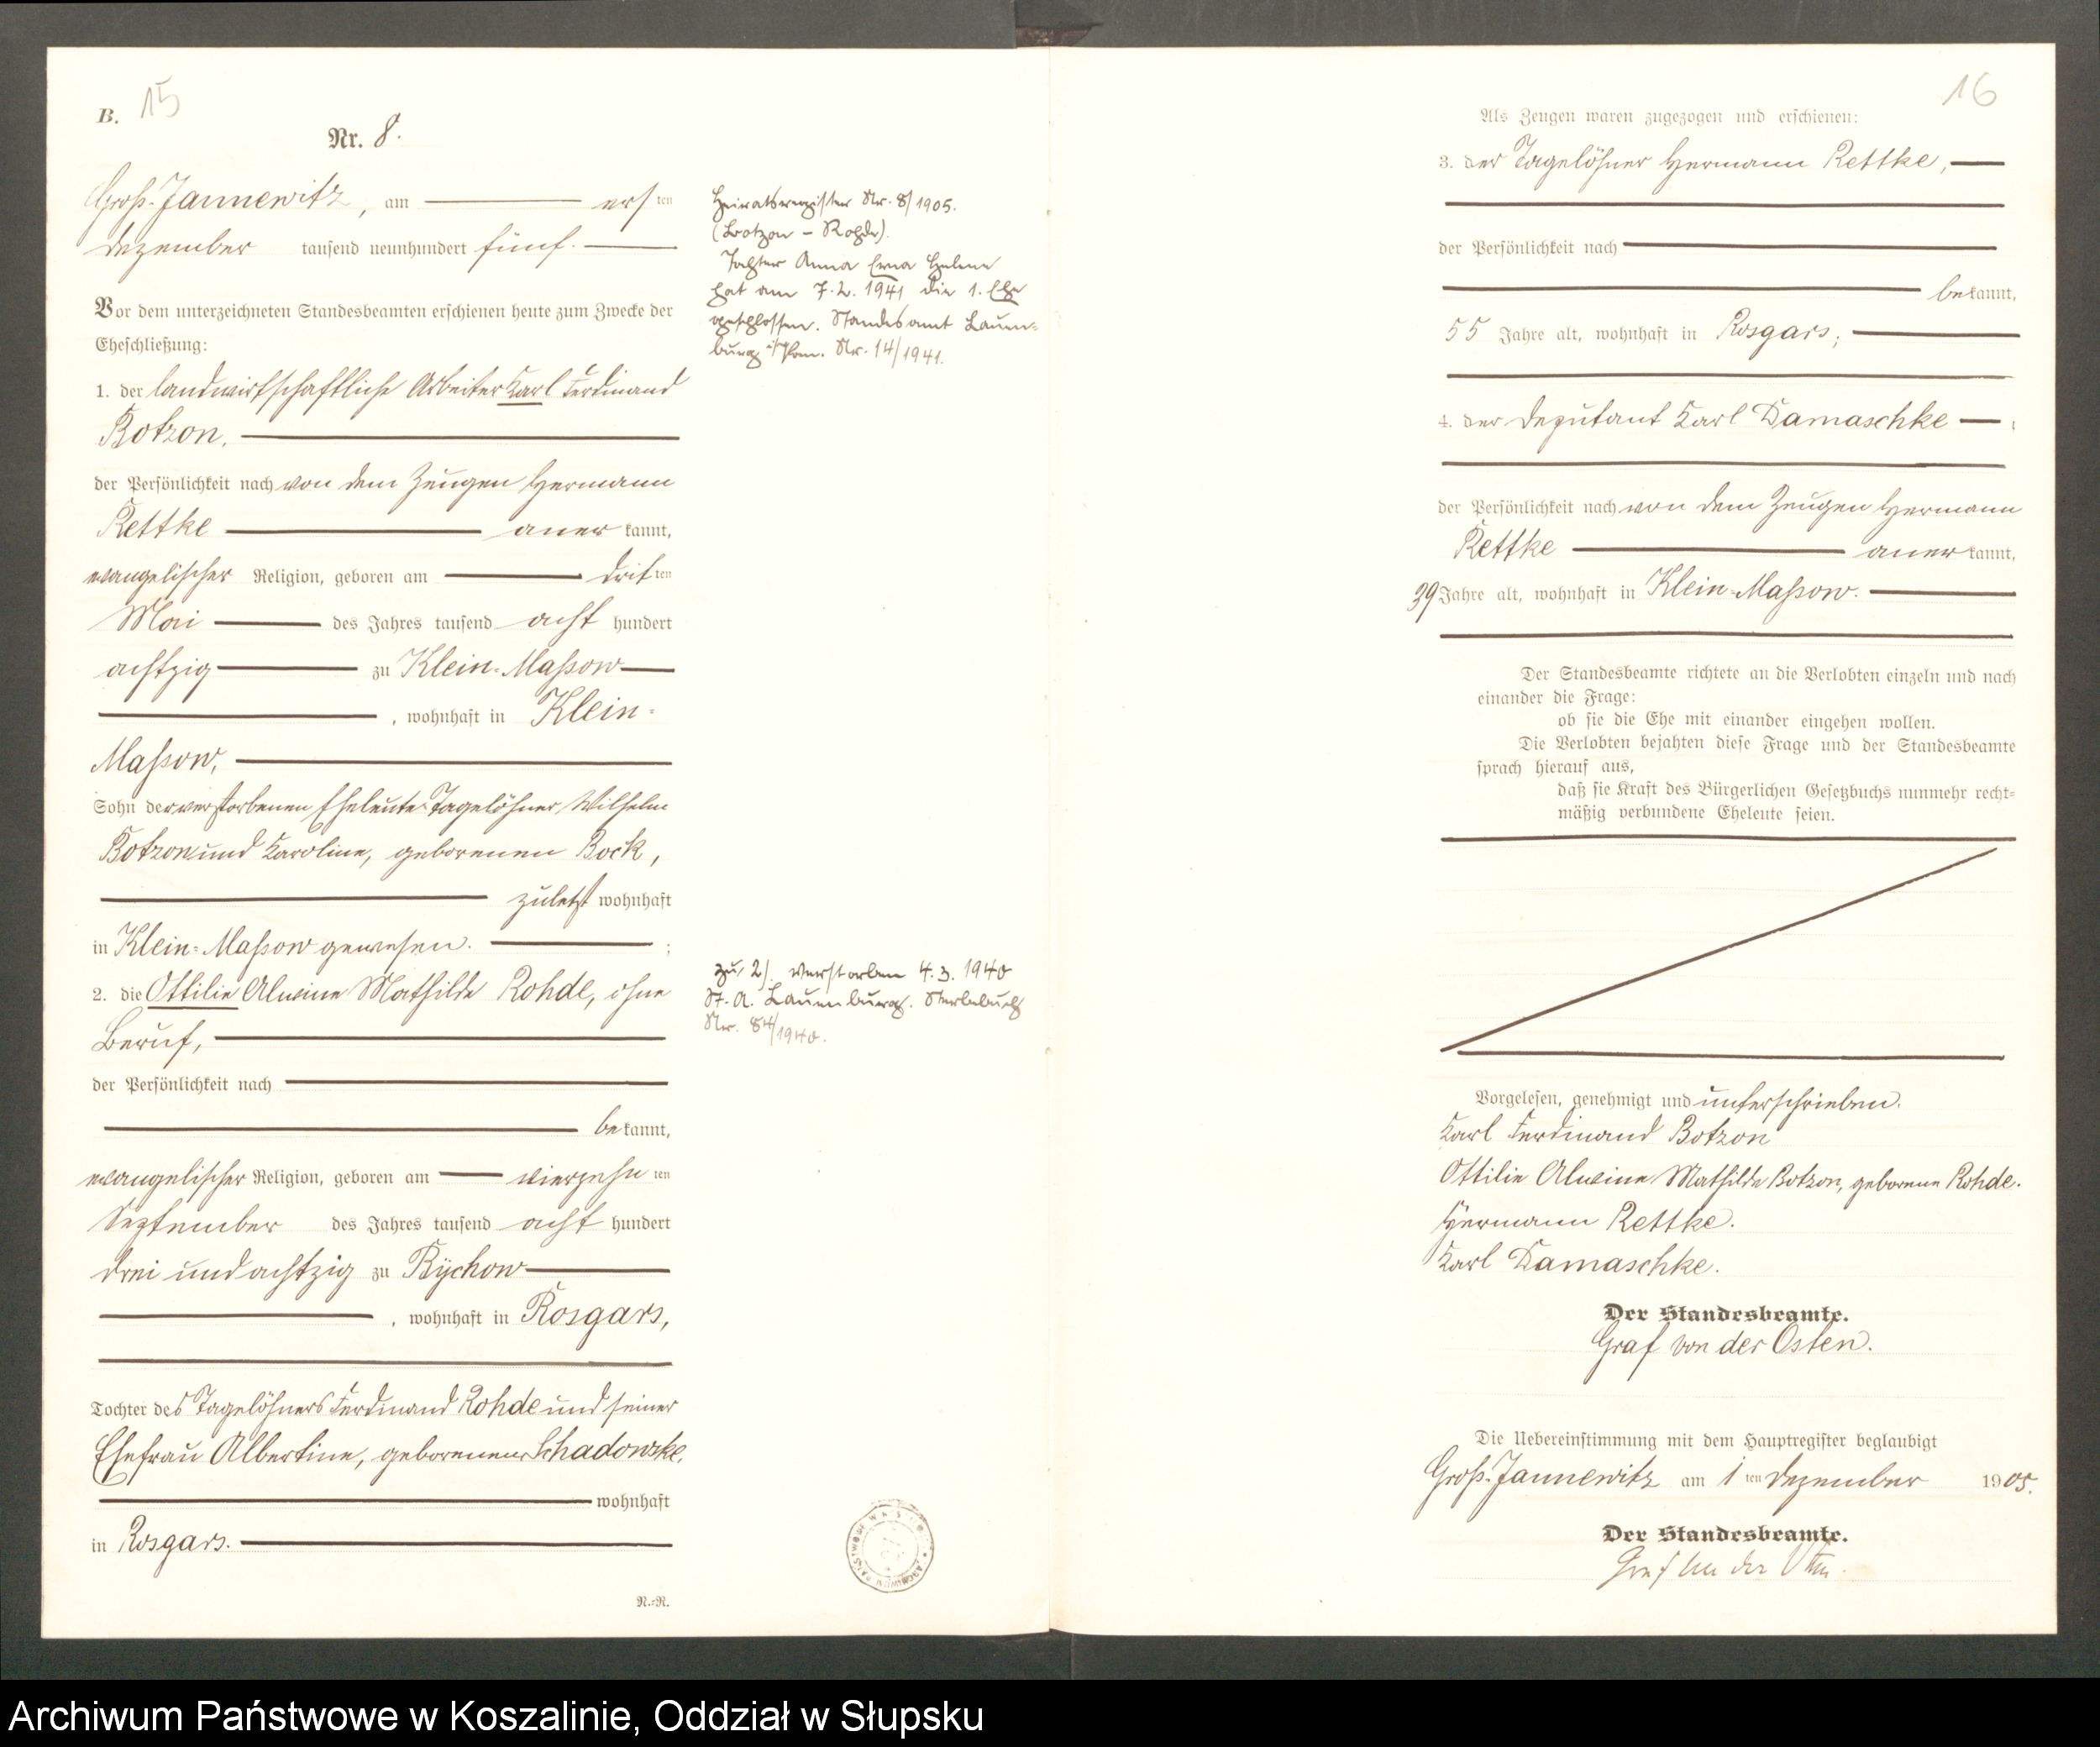 B. 15
Nr. 8.
Groß-Jannewitz, am ersten
Dezember tausend neunhundert fünf.
Vor dem unterzeichneten Standesbeamten erschienen heute zum Zwecke der
Eheschließung:
1. der landwirtschaftliche Arbeiter Karl Ferdinand
Botzon,
der Persönlichkeit nach von dem Zeugen Hermann
Rettke anerkannt,
evangelischer Religion, geboren am dritten
Mai des Jahres tausend acht hundert
achtzig zu Klein-Maßow
, wohnhaft in Klein-
Maßow,
Sohn der verstorbenen Eheleute Tagelöhner Wilhelm
Botzon und Karoline, geborenen Bock,
zuletzt wohnhaft
in Klein-Maßow gewesen. ;
2. die Ottilie Alwine Mathilde Rohde, ohne
Beruf,
der Persönlichkeit nach
bekannt,
evangelischer Religion, geboren am vierzehnten
September des Jahres tausend acht hundert
drei und achtzig zu Bychow
, wohnhaft in Rosgars,
Tochter des Tagelöhners Ferdinand Rohde und seiner
Ehefrau Albertine, geborenen Schadowske,
wohnhaft
in Rosgars.
N.-N.
Heiratsregister Nr. 8/1905.
(Botzon – Rohde).
Tochter Anna Erna Helene
hat am 7.2.1941 die 1. Ehe
geschlossen. Standesamt Lauen-
burg i/Pom. Nr. 14/1941.
zu 2). verstorben 4.3.1940
St. A. Lauenburg. Sterbebuch
Nr. 84/1940.
16
Als Zeugen waren zugezogen und erschienen:
3. der Tagelöhner Hermann Rettke,
der Persönlichkeit nach
bekannt,
55 Jahre alt, wohnhaft in Rosgars;
4. der Deputant Karl Damaschke
der Persönlichkeit nach von dem Zeugen Hermann
Rettke anerkannt,
39 Jahre alt, wohnhaft in Klein-Maßow.
Der Standesbeamte richtete an die Verlobten einzeln und nach
einander die Frage:
ob sie die Ehe mit einander eingehen wollen.
Die Verlobten bejahten diese Frage und der Standesbeamte
sprach hierauf aus,
daß sie Kraft des Bürgerlichen Gesetzbuchs nunmehr recht-
mäßig verbundene Eheleute seien.
Vorgelesen, genehmigt und unterschrieben.
Karl Ferdinand Botzon
Ottilie Alwine Mathilde Botzon, geborene Rohde.
Hermann Rettke.
Karl Damaschke.
Der Standesbeamte.
Graf von der Osten.
Die Uebereinstimmung mit dem Hauptregister beglaubigt
Groß-Jannewitz am 1ten Dezember 1905.
Der Standesbeamte.
Graf von der Osten.
Archiwum Państwowe w Koszalinie, Oddział w Słupsku